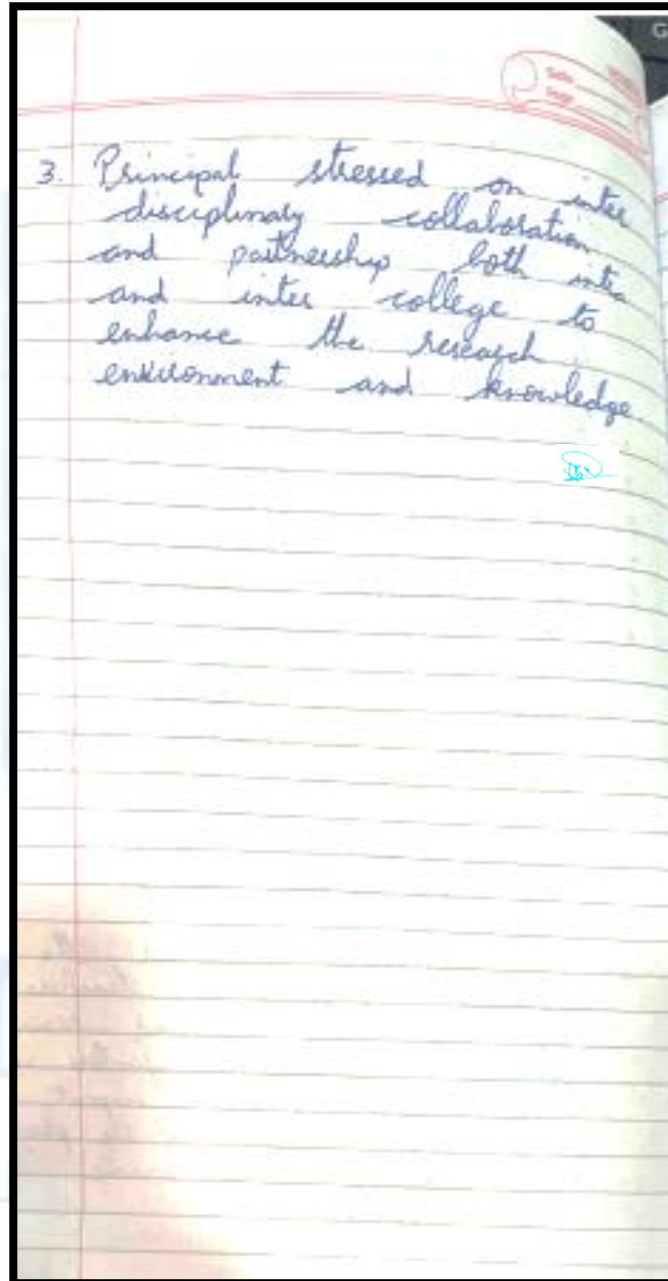 3. Principal stressed on inter
disciplinary collaboration
and partnership both intra
and inter college to
enhance the research
environment and knowledge.